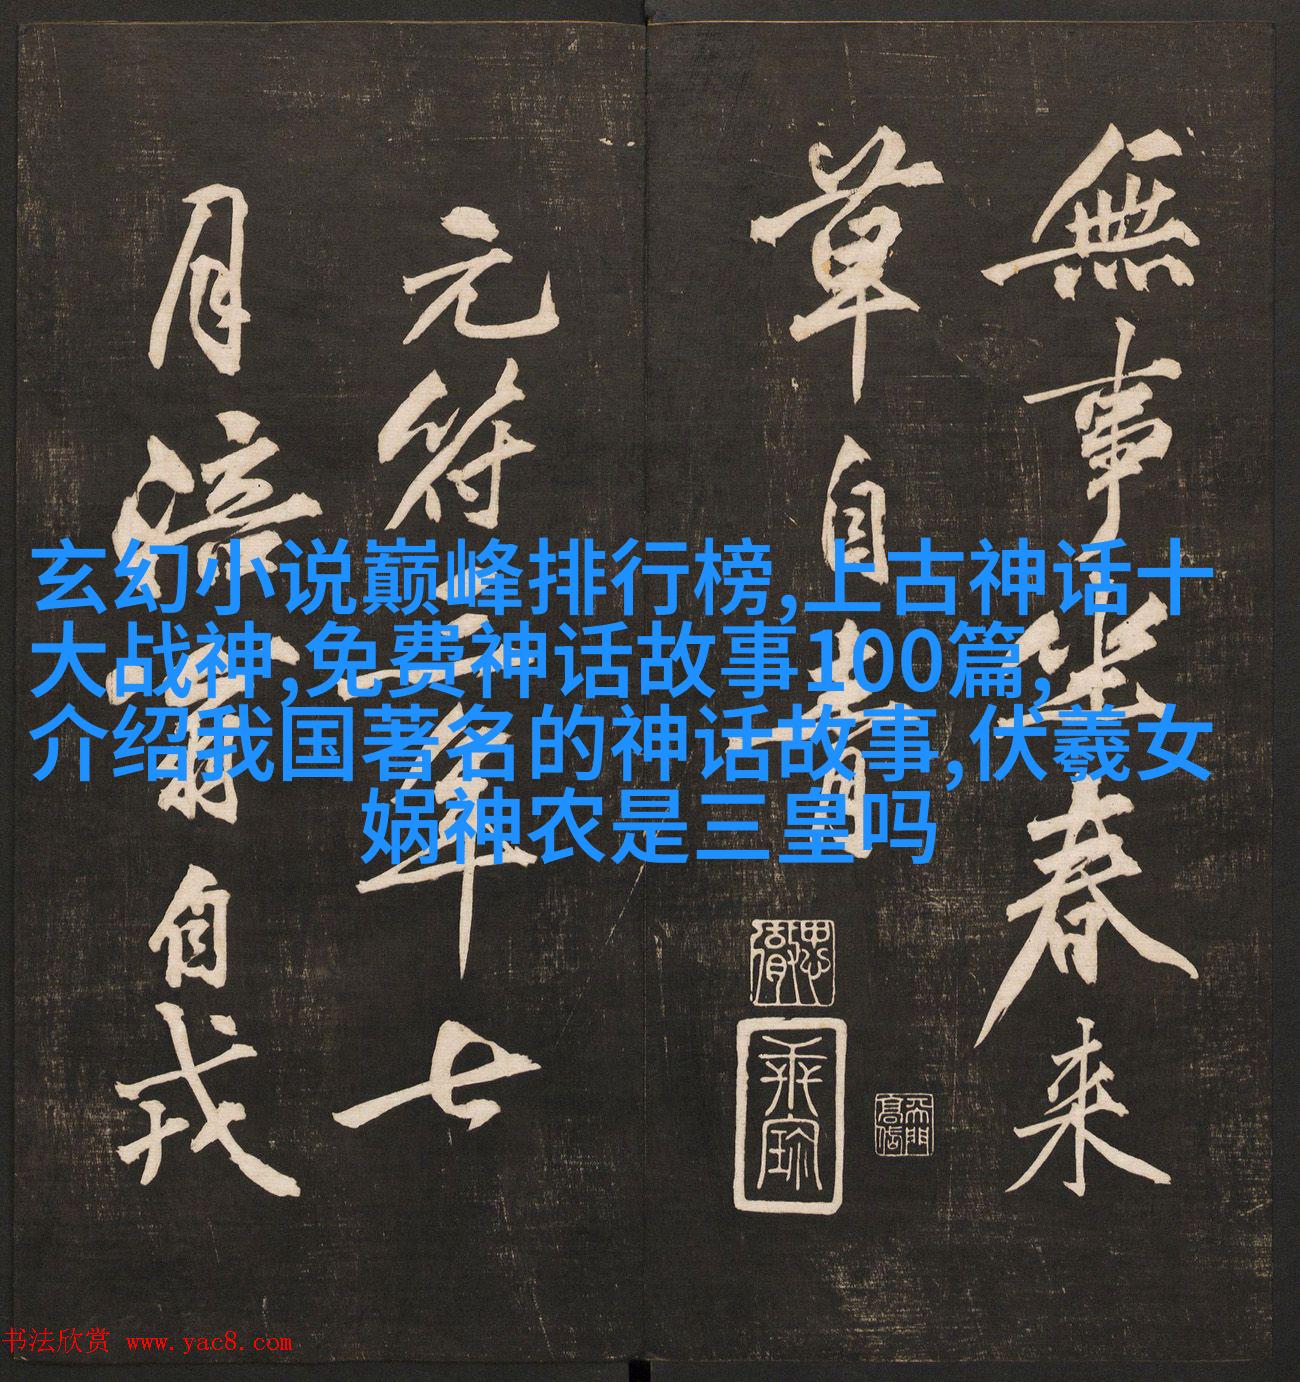 無事坐春来
草自青
元符三年七
月涪翁自戎
玄幻小说巅峰排行榜,上古神话十
大战神,免费神话故事100篇,
介绍我国著名的神话故事,伏羲女
娲神农是三皇吗
书法欣赏 www.yac8.com